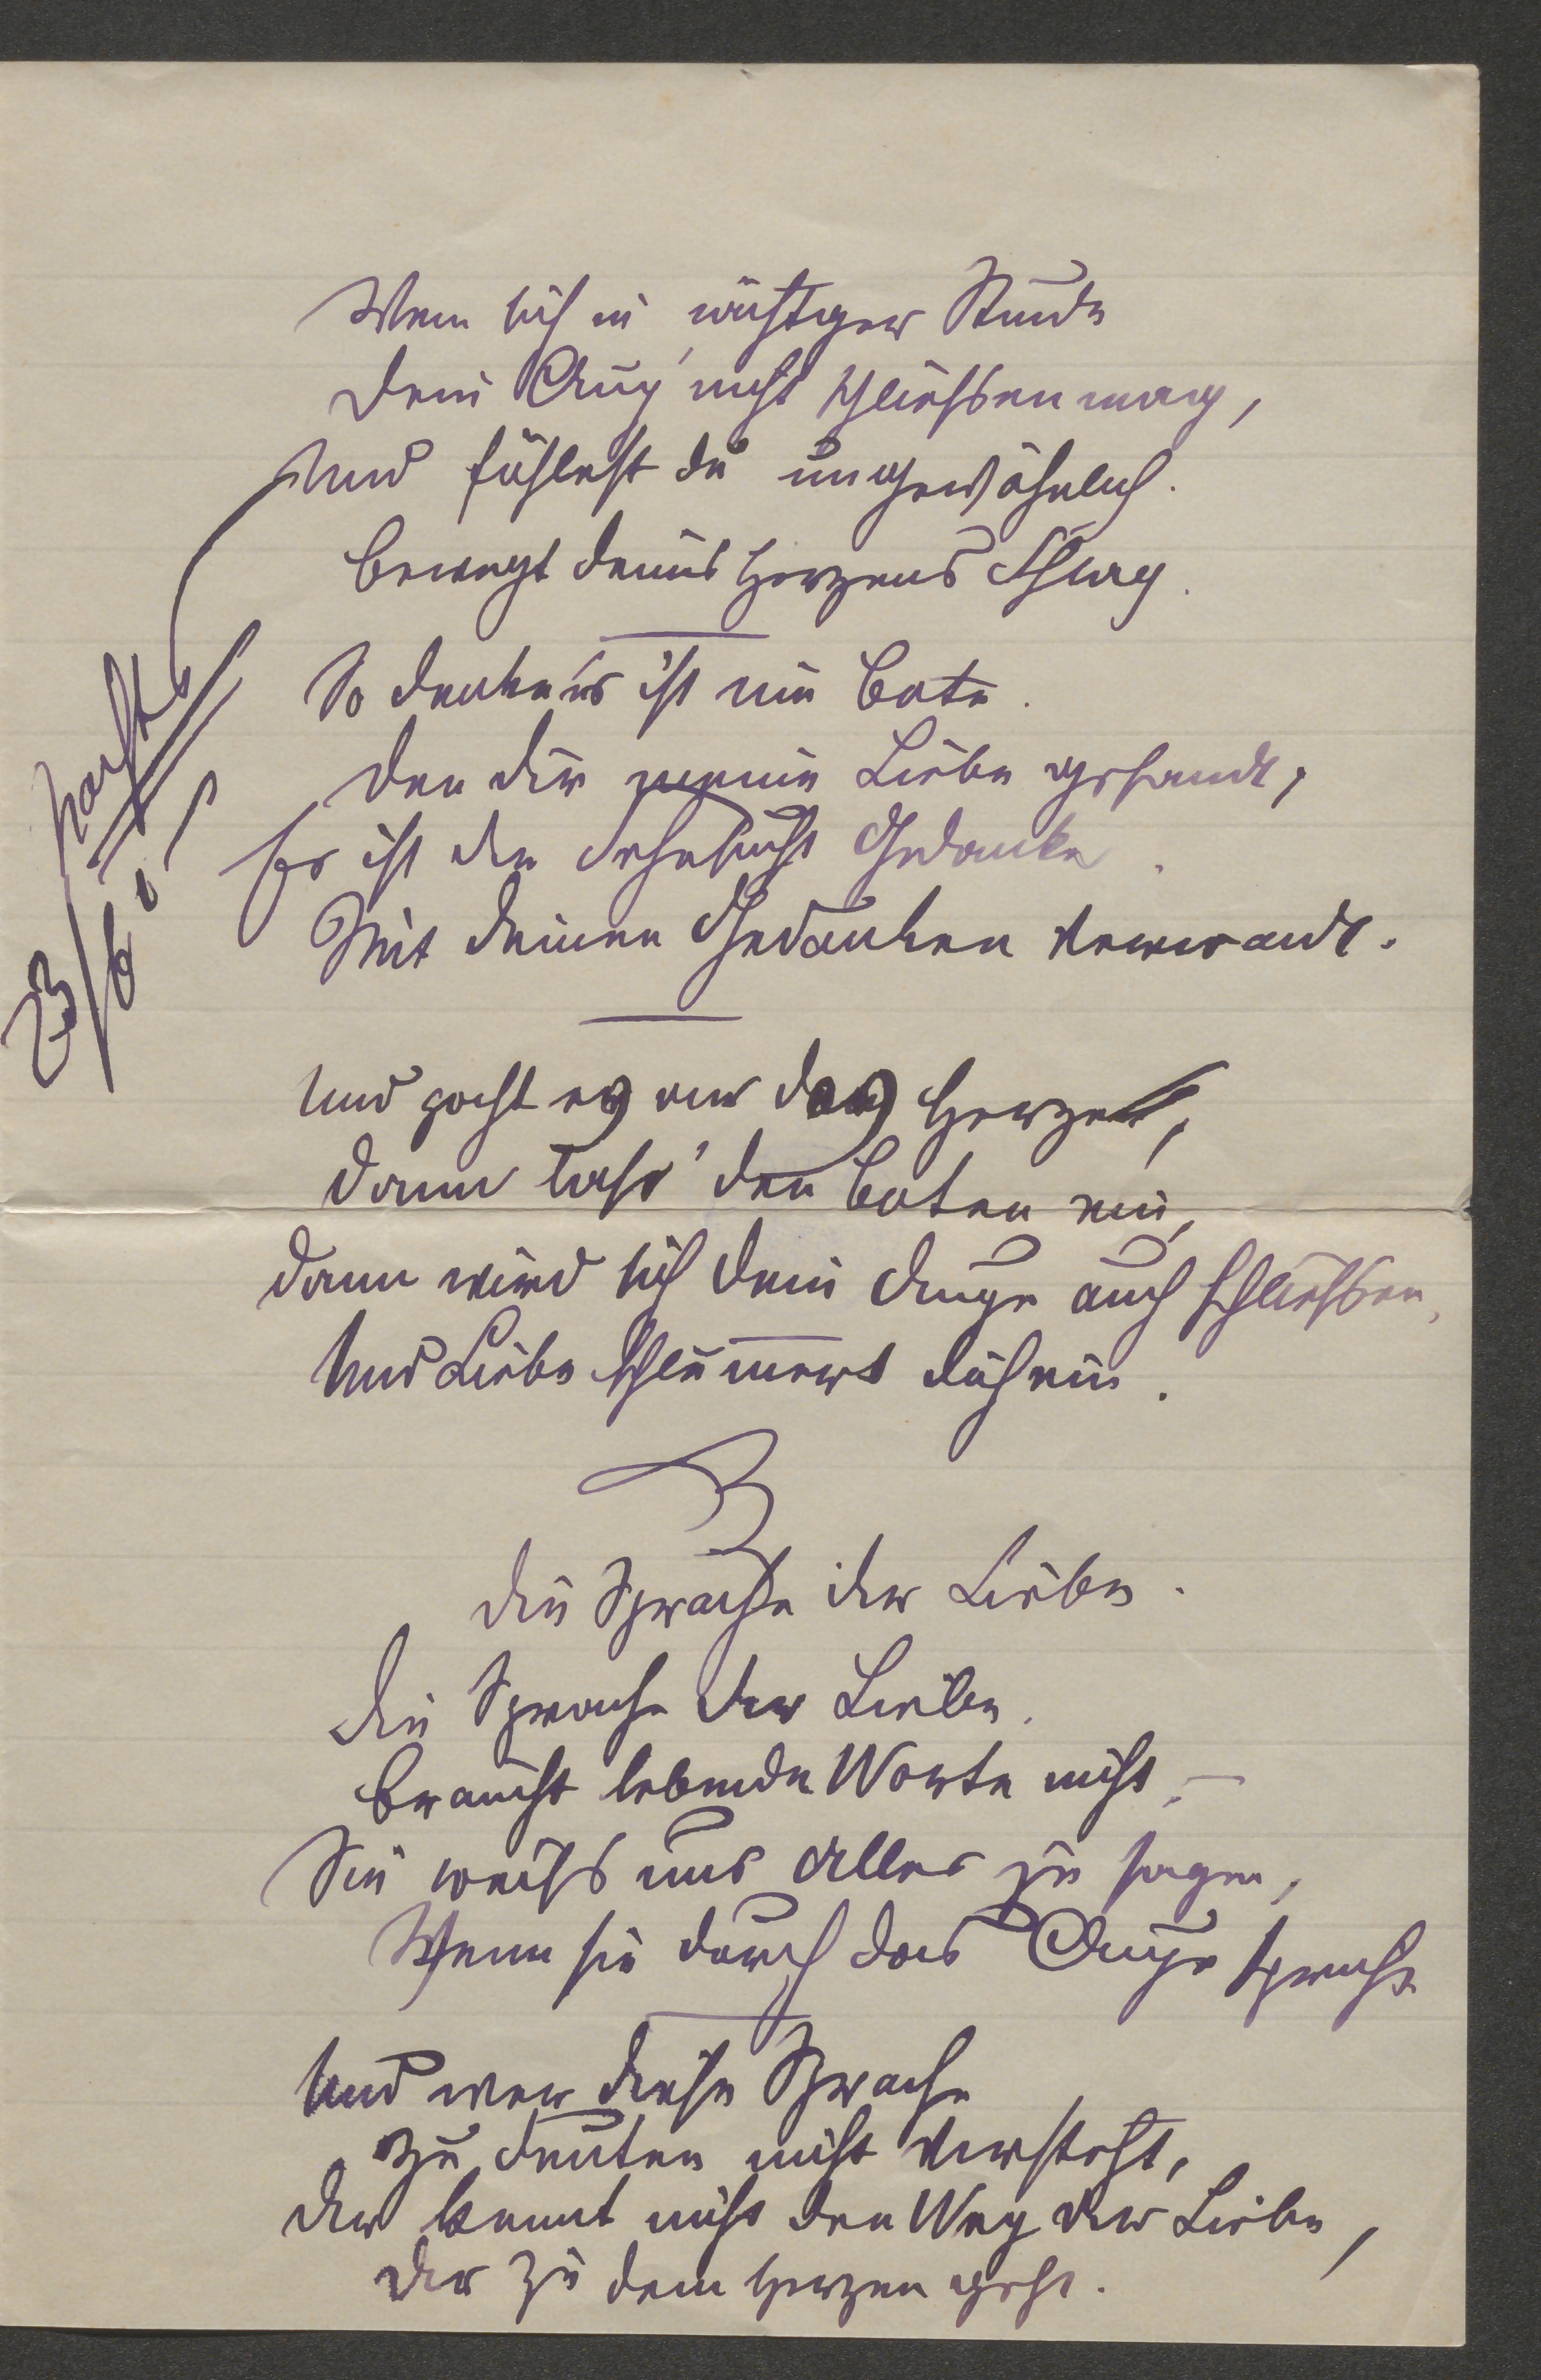 Wenn sich in nächtger Stunde
Dein Aug' nicht schliessen mag,
Und fühlest du ungewöhnlich.
Bewegt deines Herzens Schlag.
So denke 's ist ein Bote.
Den dir meine Liebe gesandt,
Es ist der Sehnsucht Gedanke.
Mit deinen Gedanken verwandt.
Und pocht es an das Herze,
Dann lass' den Boten ein,
Dann wird sich dein Auge auch schliessen,
Und Liebe schlummert dich ein.
Die Sprache der Liebe.
Die Sprache der Liebe.
Braucht lebende Worte nicht, –
Sie weiss uns Alles zu sagen,
Wenn sie durch das Auge spricht
Und wer diese Sprache
Zu deuten nicht versteht,
Der kennt nicht den Weg der Liebe,
Der zu dem Herzen geht.
23/6